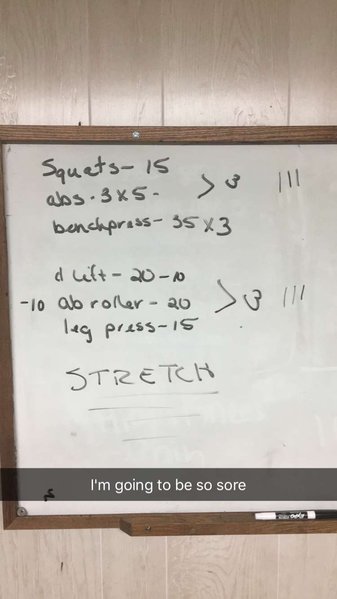 Squats- 15
abs - 3x5 -
> 3 |||
benchpress- 35x3
d lift - 20 -10
-10 ab roller - 20
> 3 |||
leg press-15
STRETCH
I'm going to be so sore
EXPO